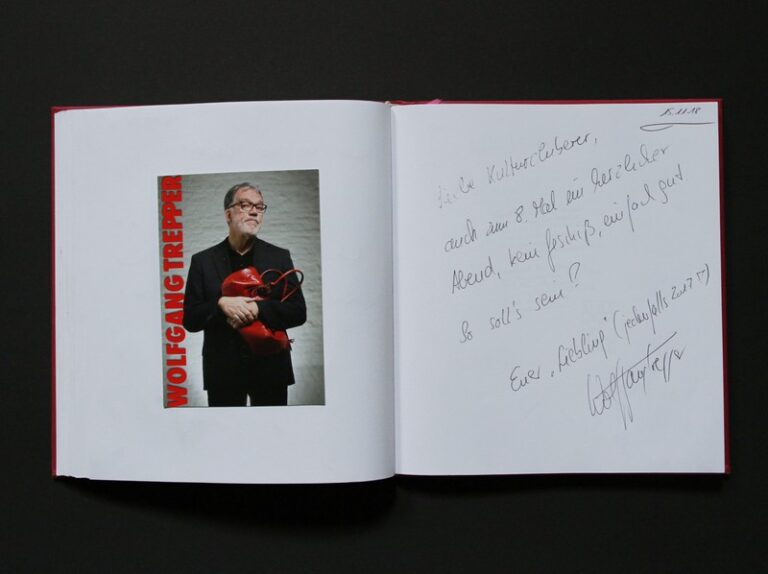 WOLFGANG TREPPER
15.11.18
Liebe Kulturcluberer,
auch zum 8. Mal ein herzlicher
Abend, kein Geschiß, einfach gut
So soll's sein!
Euer "Liebling" (jedenfalls 2017
Wolfgang Trepper